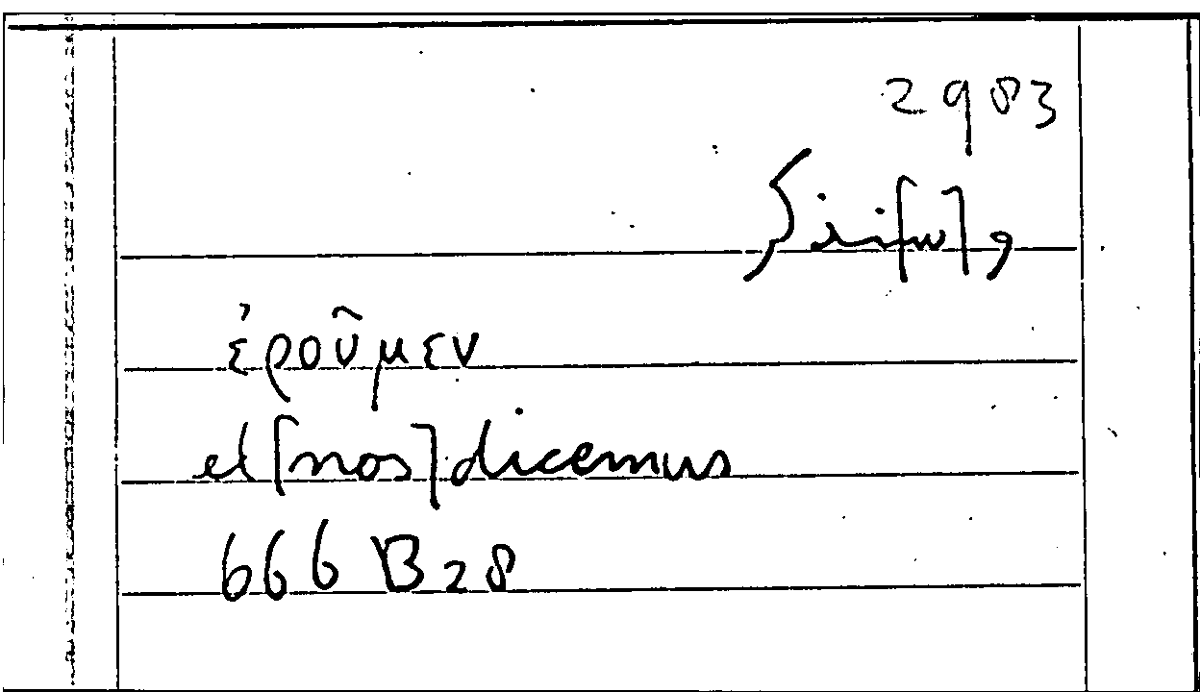 2983
ἐροῦμεν
et [nos] dicemus
666 B 28